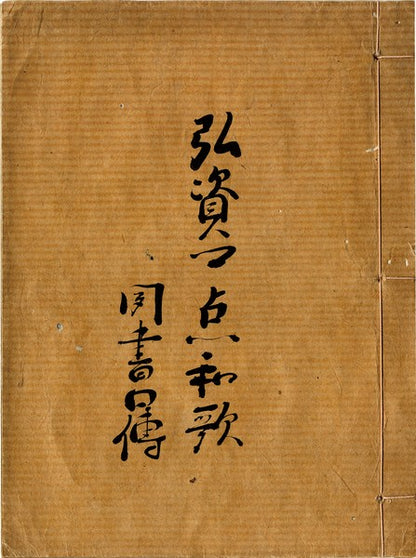 弘資卿点和歌
同書口傳